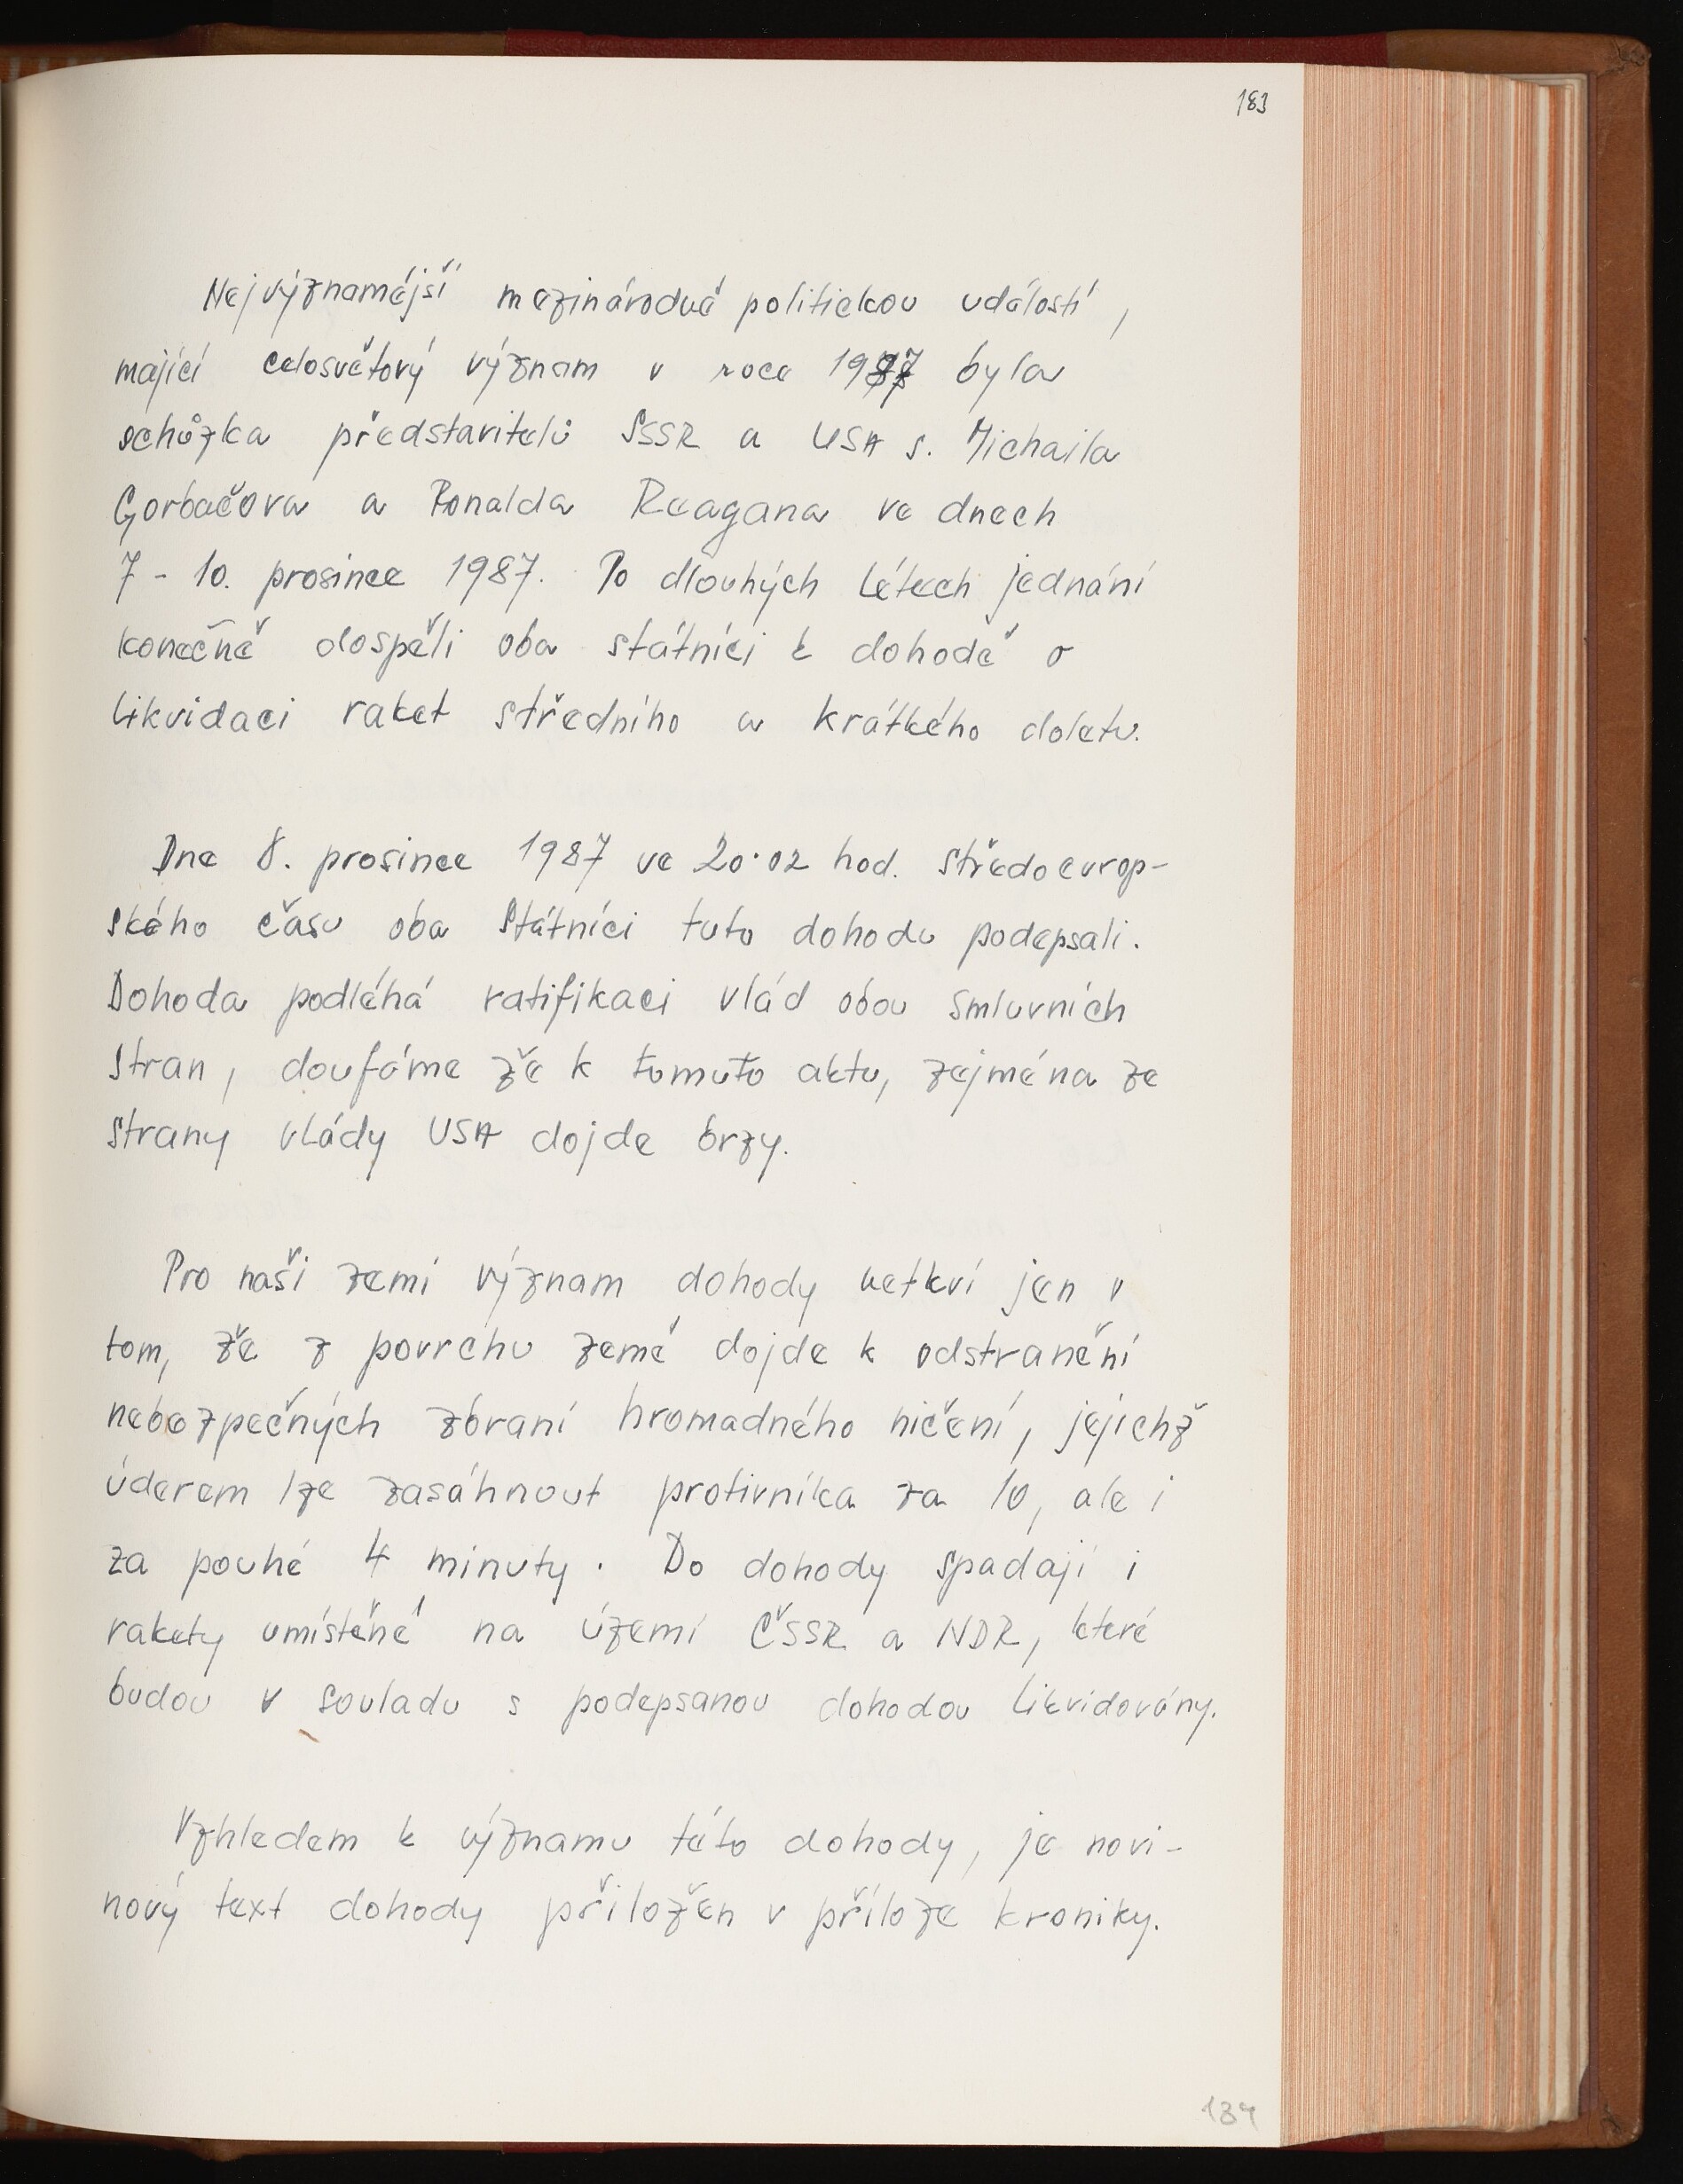 183
Nejvýznamější mezinárodně politickou událostí,
mající celosvětový význam v roce 1987 byla
schůzka představitelů SSSR a USA s. Michaila
Gorbačova a Ronalda Reagana ve dnech
7 - 10. prosince 1987. Po dlouhých létech jednání
konečně dospěli oba státníci k dohodě o
likvidaci raket středního a krátkého doletu.
Dne 8. prosince 1987 ve 20·02 hod. středoevrop-
ského času oba státníci tuto dohodu podepsali.
Dohoda podléhá ratifikaci vlád obou smluvních
stran, doufáme že k tomuto aktu, zejména ze
strany vlády USA dojde brzy.
Pro naši zemi význam dohody netkví jen v
tom, že z povrchu země dojde k odstranění
nebezpečných zbraní hromadného ničení, jejichž
úderem lze zasáhnout protivníka za 10, ale i
za pouhé 4 minuty. Do dohody spadají i
rakety umístěné na území ČSSR a NDR, které
budou v souladu s podepsanou dohodou likvidovány.
Vzhledem k významu této dohody, je novi-
nový text dohody přiložen v příloze kroniky.
184